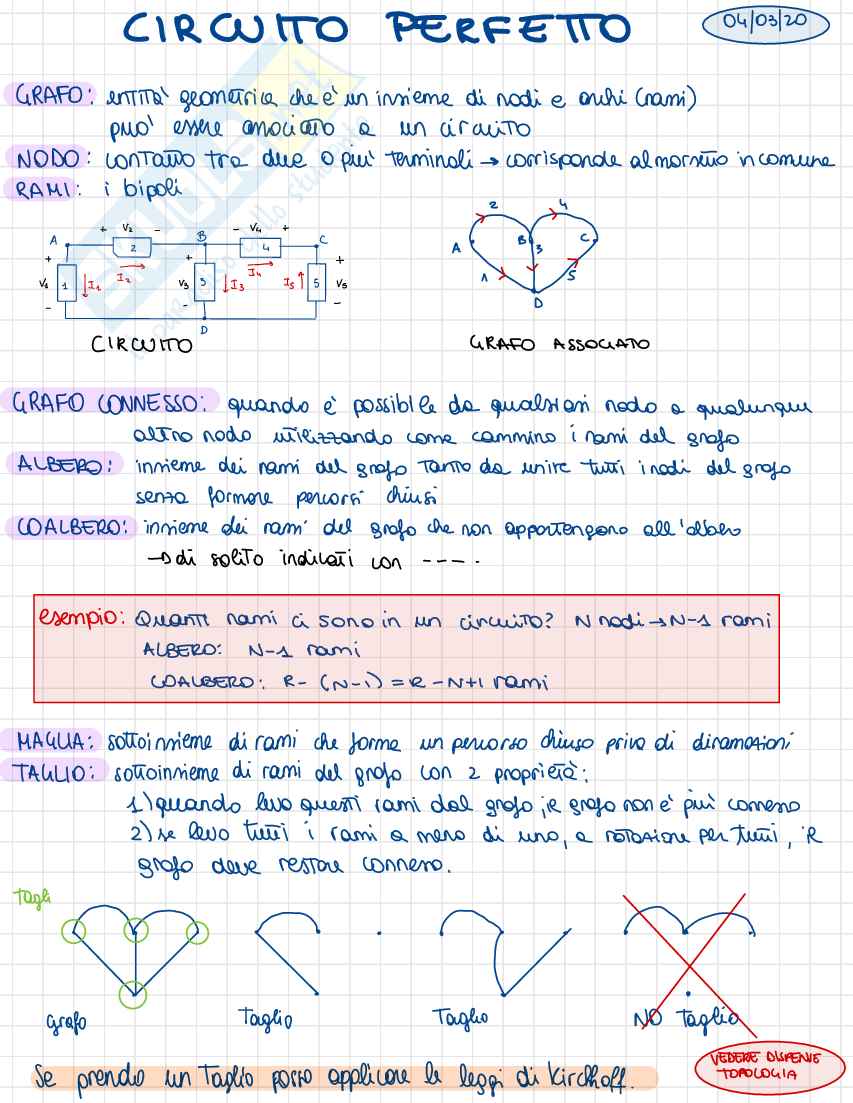 CIRCUITO PERFETTO
04/03/20
GRAFO: entità geometrica che è un insieme di nodi e archi (rami)
può essere associato a un circuito
NODO: contatto tra due o più terminali → corrisponde al morsetto in comune
RAMI: i bipoli
A + V2 - B - V4 + C
2 4
I2 I4
+ V1 - 1 I1 + V3 - 3 I3 I5 5 + V5 -
D
CIRCUITO
2 4
A B 3 C
1 5
D
GRAFO ASSOCIATO
GRAFO CONNESSO: quando è possibile da qualsiasi nodo a qualunque
altro nodo utilizzando come cammino i rami del grafo
ALBERO: insieme dei rami del grafo tanto da unire tutti i nodi del grafo
senza formare percorsi chiusi
COALBERO: insieme dei rami del grafo che non appartengono all'albero
→ di solito indicati con ----.
esempio: Quanti rami ci sono in un circuito? N nodi → N-1 rami
ALBERO: N-1 rami
COALBERO: R-(N-1)=R-N+1 rami
MAGLIA: sottoinsieme di rami che forma un percorso chiuso privo di diramazioni
TAGLIO: sottoinsieme di rami del grafo con 2 proprietà:
1) quando levo questi rami dal grafo, il grafo non è più connesso
2) se levo tutti i rami a meno di uno, a rotazione per tutti, il
grafo deve restare connesso.
Tagli
Grafo
Taglio
Taglio
NO Taglio
VEDERE DISPENSE
TOPOLOGIA
Se prendo un Taglio posso applicare le leggi di Kirchhoff.